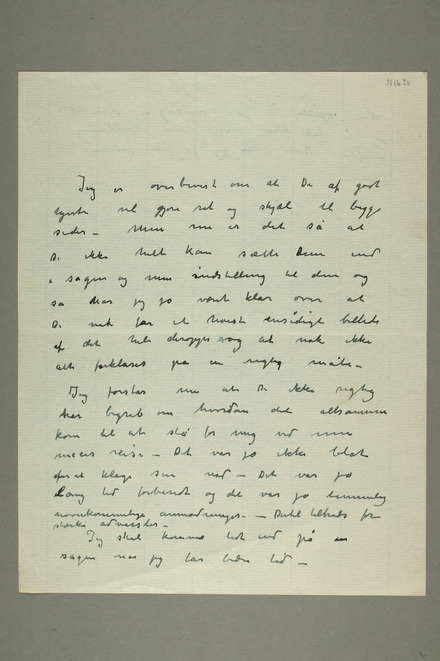 N1630
Jeg er overbevist om at De af godt
hjerte vil gjøre ret og skjæl til begge
sider – Men nu er det så at
De ikke helt kan sætte Dem ind
i sagen og min indstilling til dem og
så har jeg jo været klar over at
De nok får et høist ensidigt billede
af det hele deroppe og at nok ikke
alt forklares på en rigtig måde –
Jeg forstår nu at De ikke rigtig
har begreb om hvordan det altsammen
kom til at stå for mig ved min
reise – Det var jo ikke blot
for at klage sin nød – Det var jo
lang tid forberedt og det var jo temmelig
uforekommelige anmodninger –
stærke advarsler –
Jeg skal komme lidt ind på en
sagen når jeg får bedre tid –